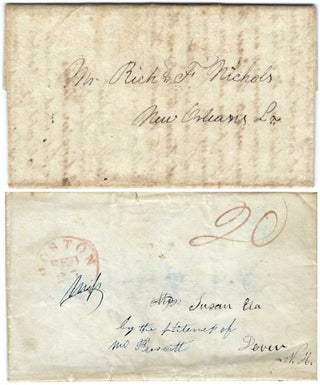 Mr. Richd F Nichols
New Orleans La
BOSTON
20
Susan Ela
by the politeness of
Mr Prescott
Dover
N. H.